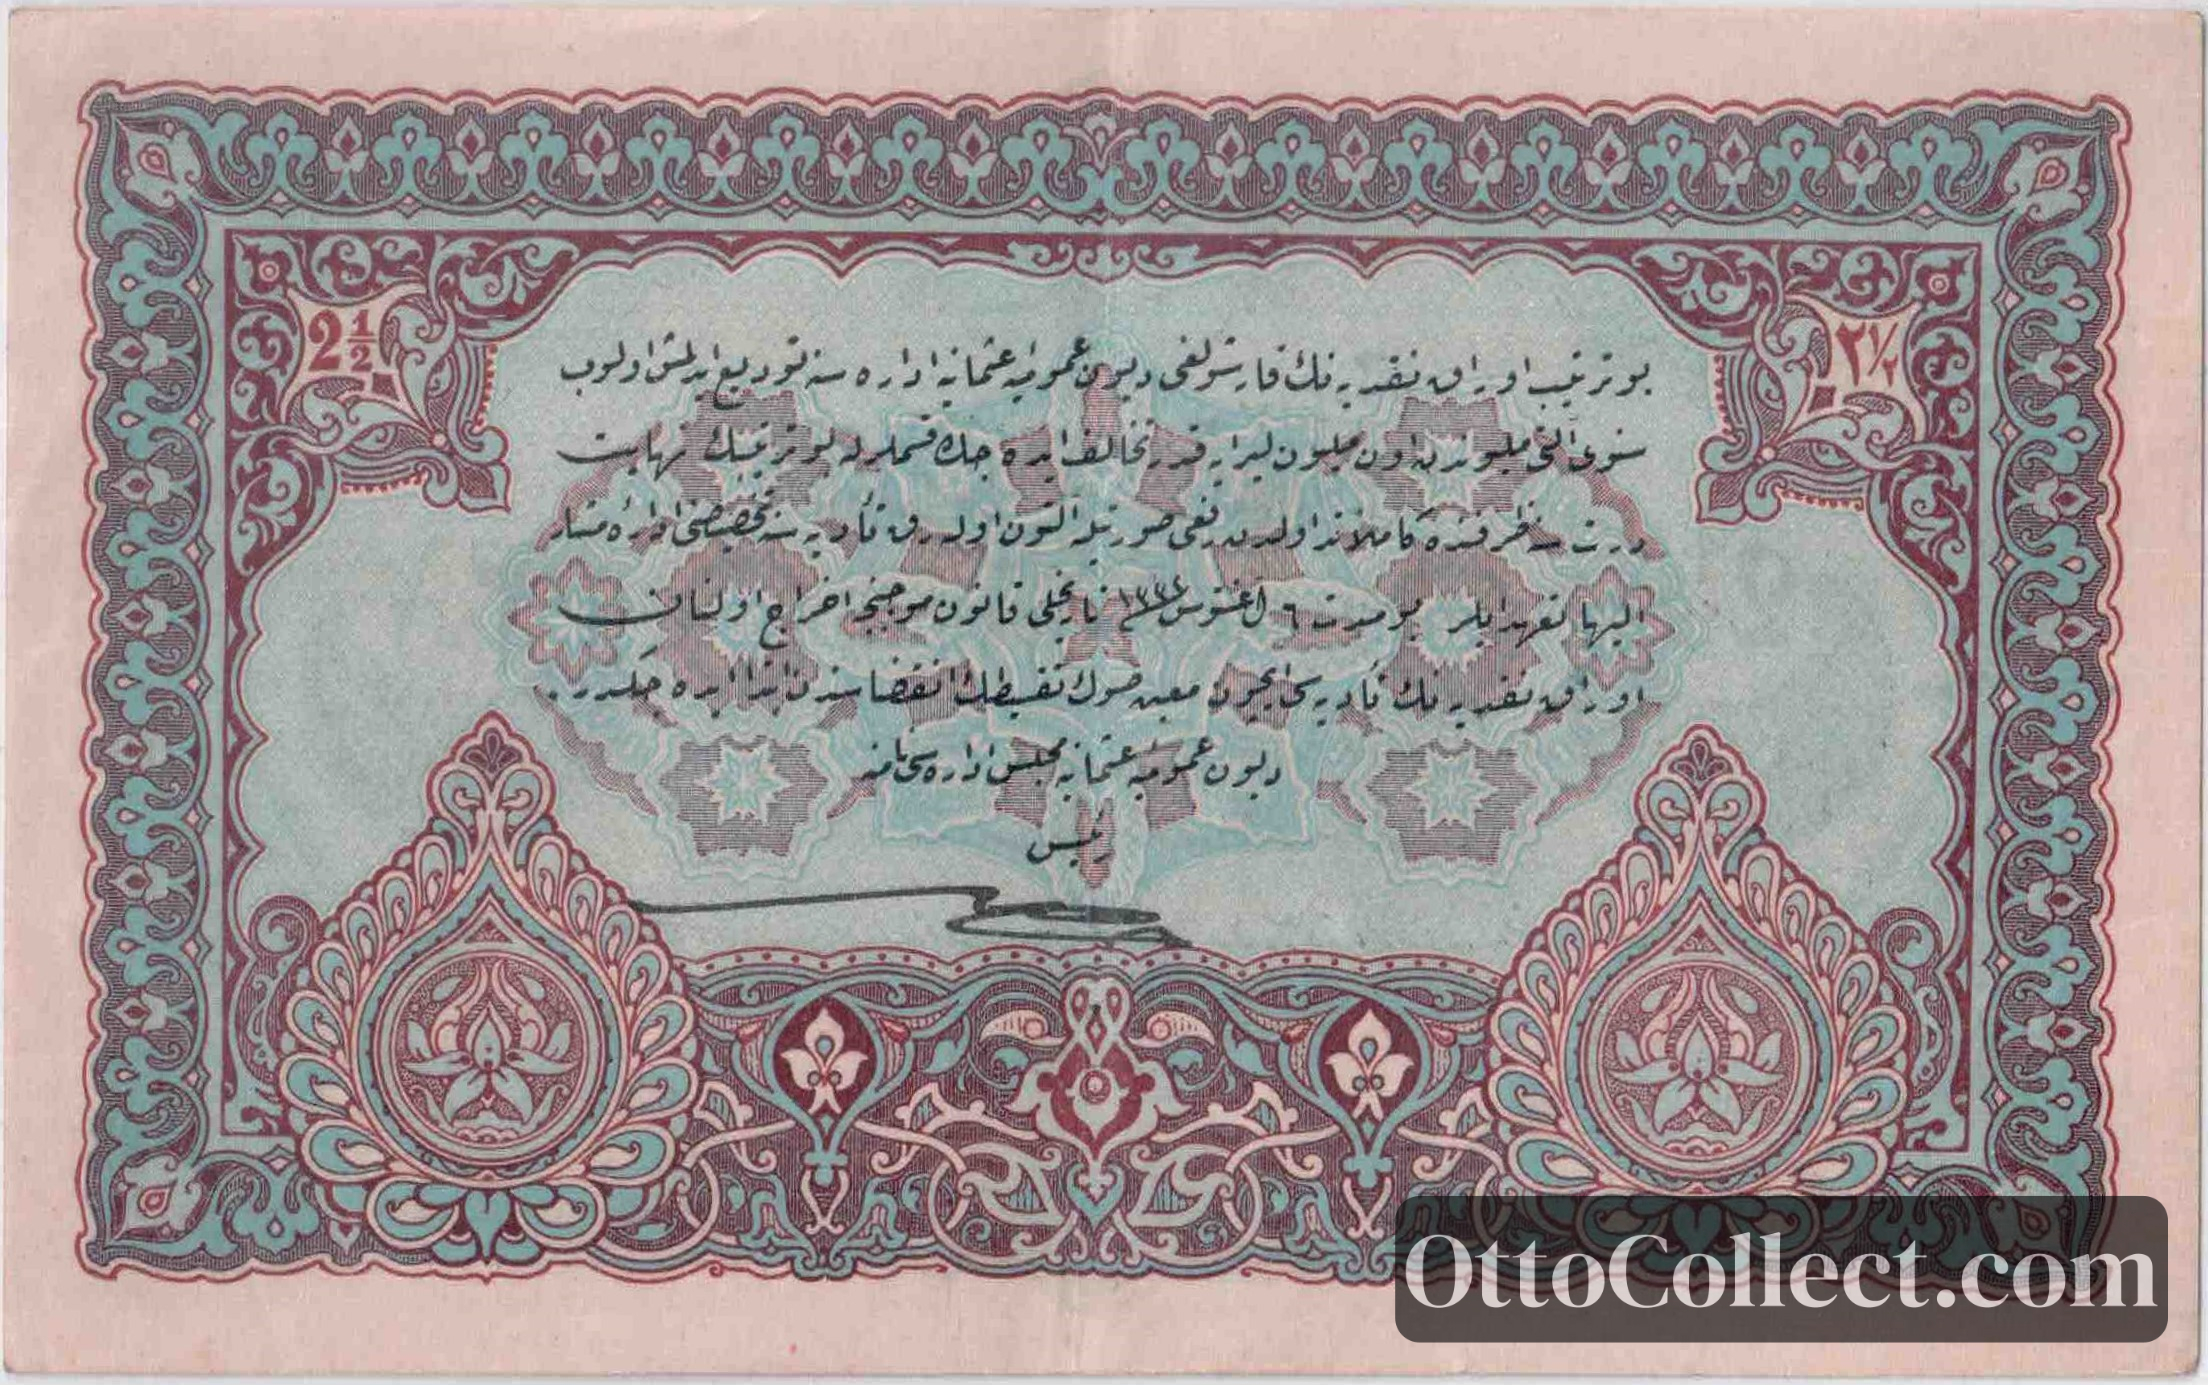 2 1/2
٢ ١/٢
بو ترتیب اوراق نقدیه نك قارشولغی دیون عمومیهٔ عثمانیه اداره سنه تودیع ایدلمش اولوب
سنوی آلتی ملیوندن اون ملیون لیرایه قدر تخالف ایده جك قسملرله بو ترتیبك نهایت
درت سنه ظرفنده كاملاً تداولدن رفعی صورتیله آلتون اوله رق تأدیه سنه تخصیصنی ادارهٔ مشار
الیها تعهد ایلر بو مدت ٦ اغستوس ١٣٣٢ تاریخلی قانون موجبنجه اخراج اولنان
اوراق نقدیه نك تأدیه سی ایچون معین صوك تقسیطك انقضاسندن ابتدا ایده جكدر.
دیون عمومیهٔ عثمانیه مجلس اداره سی نامنه
رئیس
OttoCollect.com